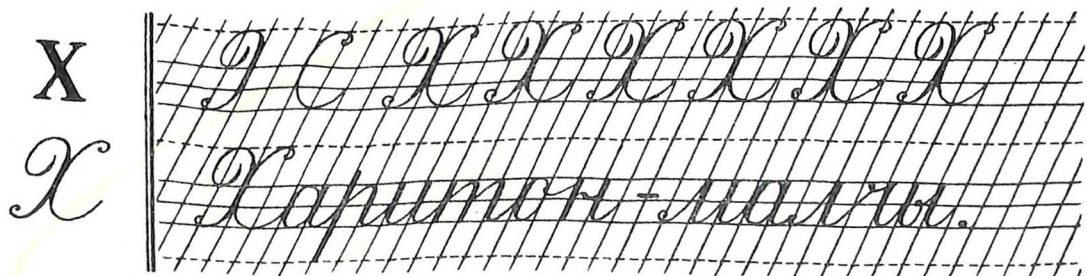 Х С Х Х Х Х Х Х
Х Харитон-малчы.